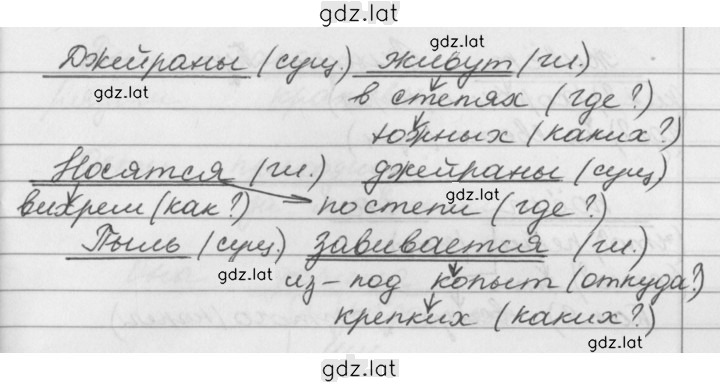 gdz.lat
Джейраны (сущ.) живут (гл.)
gdz.lat
gdz.lat
в степях (где?)
южных (каких?)
Носятся (гл.) джейраны (сущ)
gdz.lat
вихрем (как?) по степи (где?)
Пыль (сущ.) завивается (гл.)
gdz.lat
из-под копыт (откуда?)
крепких (каких?)
gdz.lat
gdz.lat